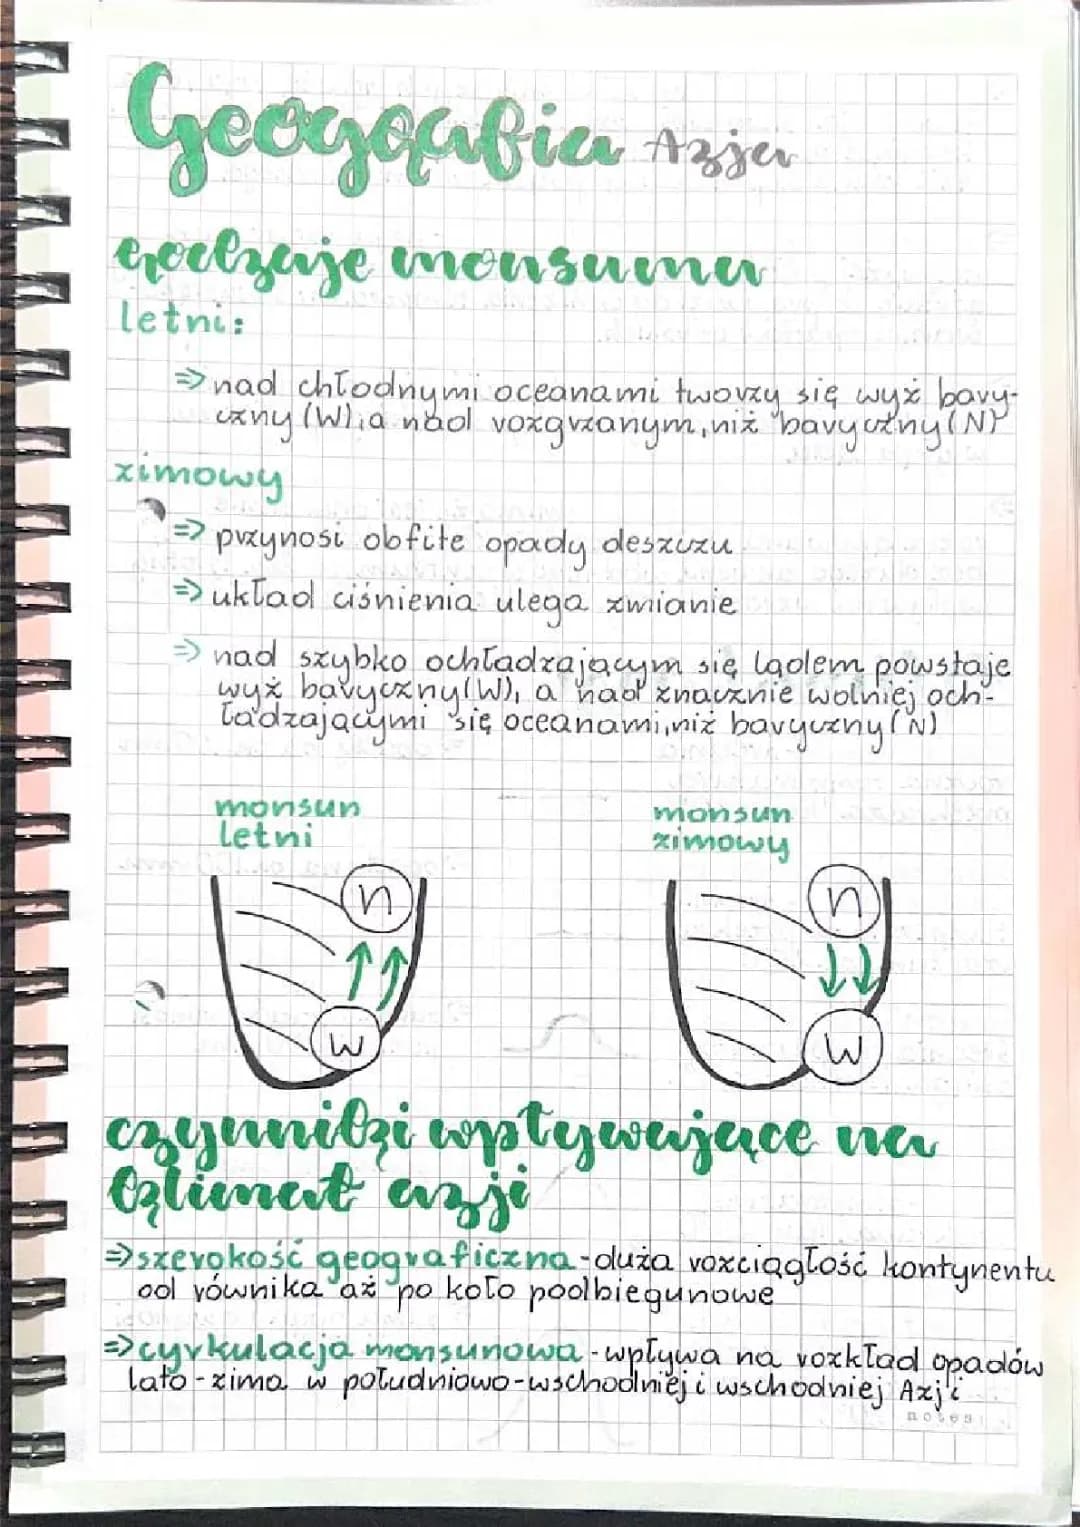 Geografia Azja
rodzaje monsuna
letni:
⇒ nad chłodnymi oceanami tworzy się wyż bary-
czny (W), a nad rozgrzanym, niż baryczny (N)
zimowy
⇒ przynosi obfite opady deszczu
⇒ układ ciśnienia ulega zmianie
⇒ nad szybko ochładzającym się lądem powstaje
wyż baryczny (W), a nad znacznie wolniej och-
ładzającymi się oceanami, niż baryczny (N)
monsun
letni
monsun
zimowy
n
n
w
w
czynniki wpływające na
klimat azji
⇒ szerokość geograficzna - duża rozciągłość kontynentu
od równika aż po koło podbiegunowe
⇒ cyrkulacja monsunowa - wpływa na rozkład opadów
lato - zima w południowo-wschodniej i wschodniej Azji
notes